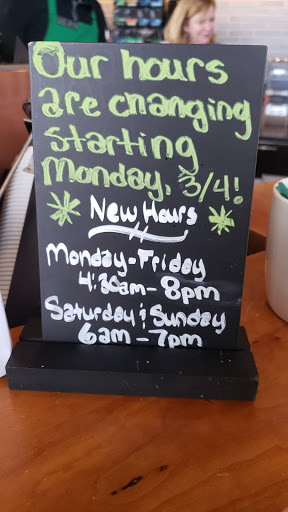 Our hours
are changing
starting
Monday, 3/4!
New Hours
Monday-Friday
4:30am-8pm
Saturday & Sunday
6am-7pm